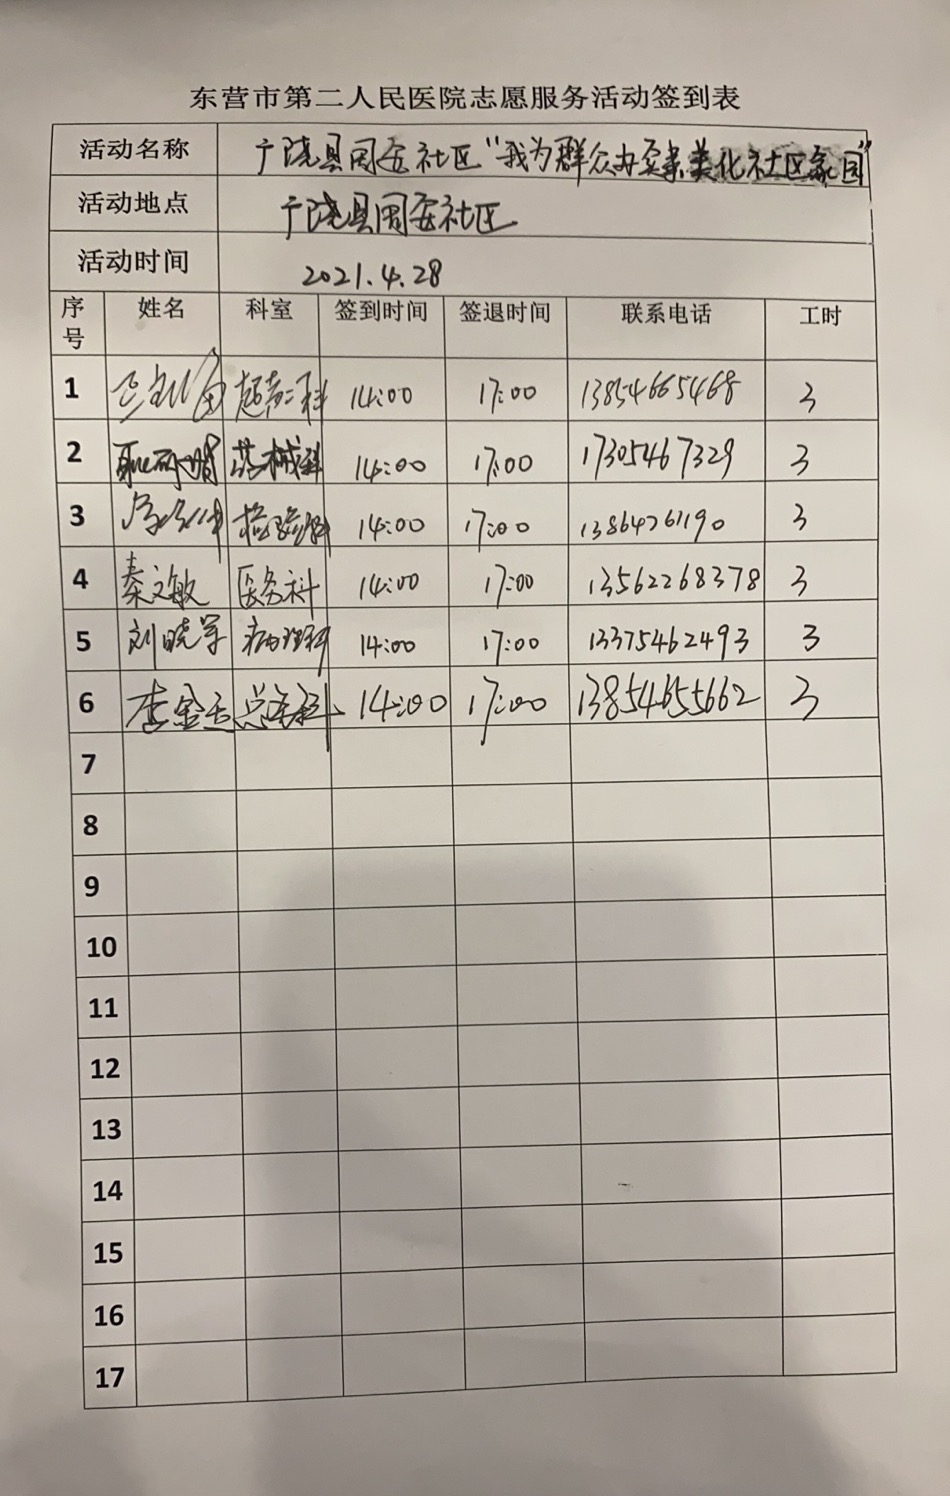 东营市第二人民医院志愿服务活动签到表
活动名称 广饶县同安社区“我为群众办实事美化社区家园”
活动地点 广饶县同安社区
活动时间 2021.4.28
序号 姓名 科室 签到时间 签退时间 联系电话 工时
1 超声二科 14:00 17:00 13854665468 3
2 药械科 14:00 17:00 17305467329 3
3 检验科 14:00 17:00 13864761190 3
4 秦文敏 医务科 14:00 17:00 13562268378 3
5 刘晓军 病理科 14:00 17:00 13375462493 3
6 李金玉 总务科 14:00 17:00 13854655662 3
7
8
9
10
11
12
13
14
15
16
17